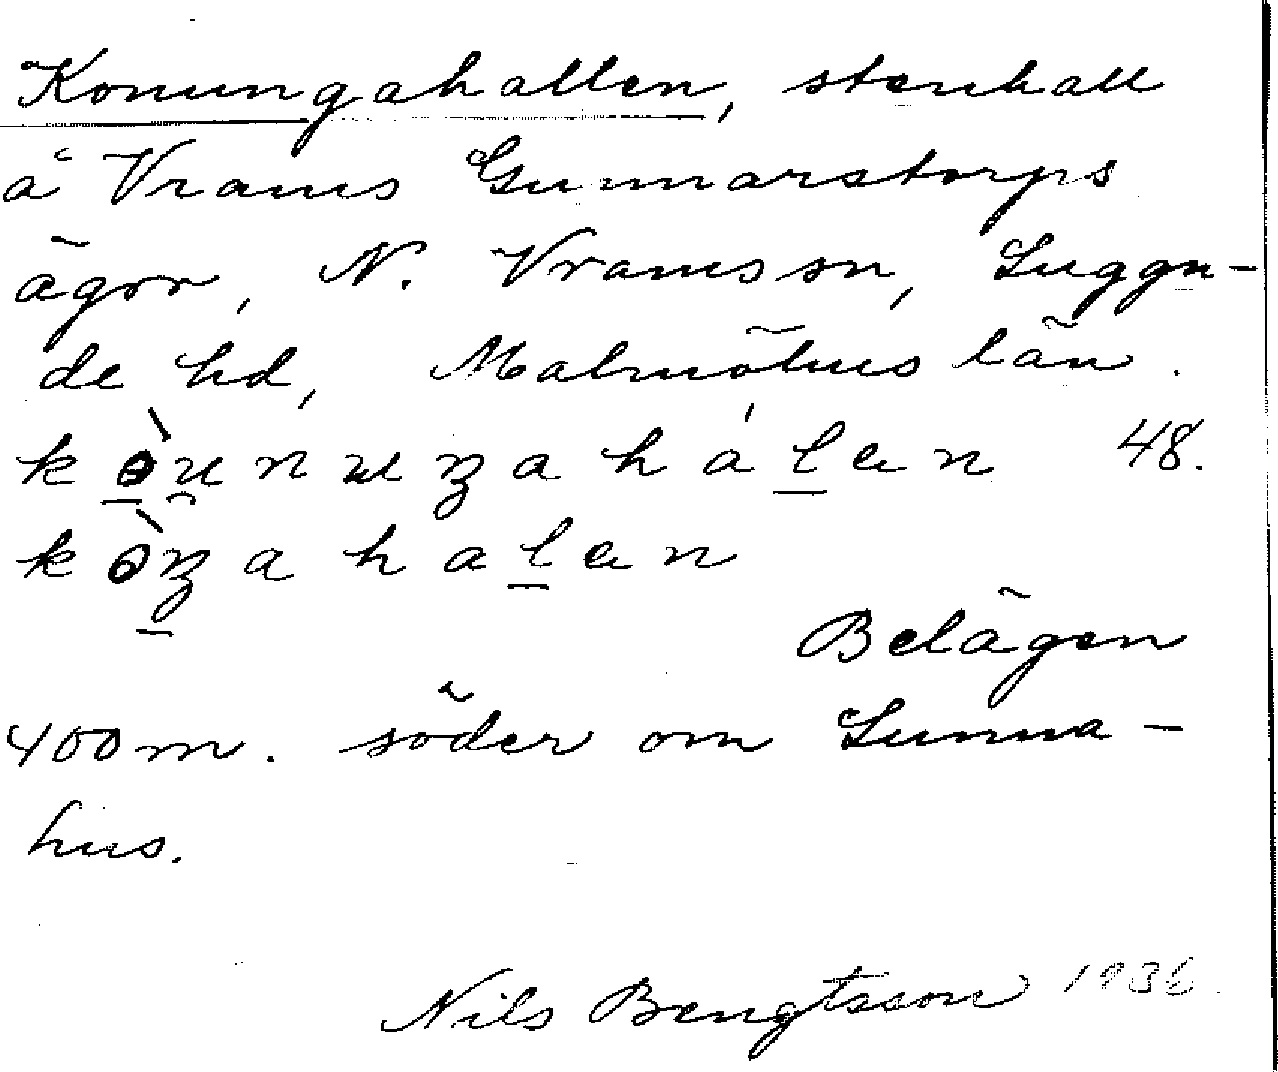 Konungahallen, stenhall
å Vrams Gunnarstorps
ägor, N. Vrams sn, Luggu-
de hd, Malmöhus län.
kò̱u̯nuŋahál̲en 48.
kòŋ̱ahal̲en
Belägen
400 m. söder om Sunna-
hus.
Nils Bengtsson 1936.